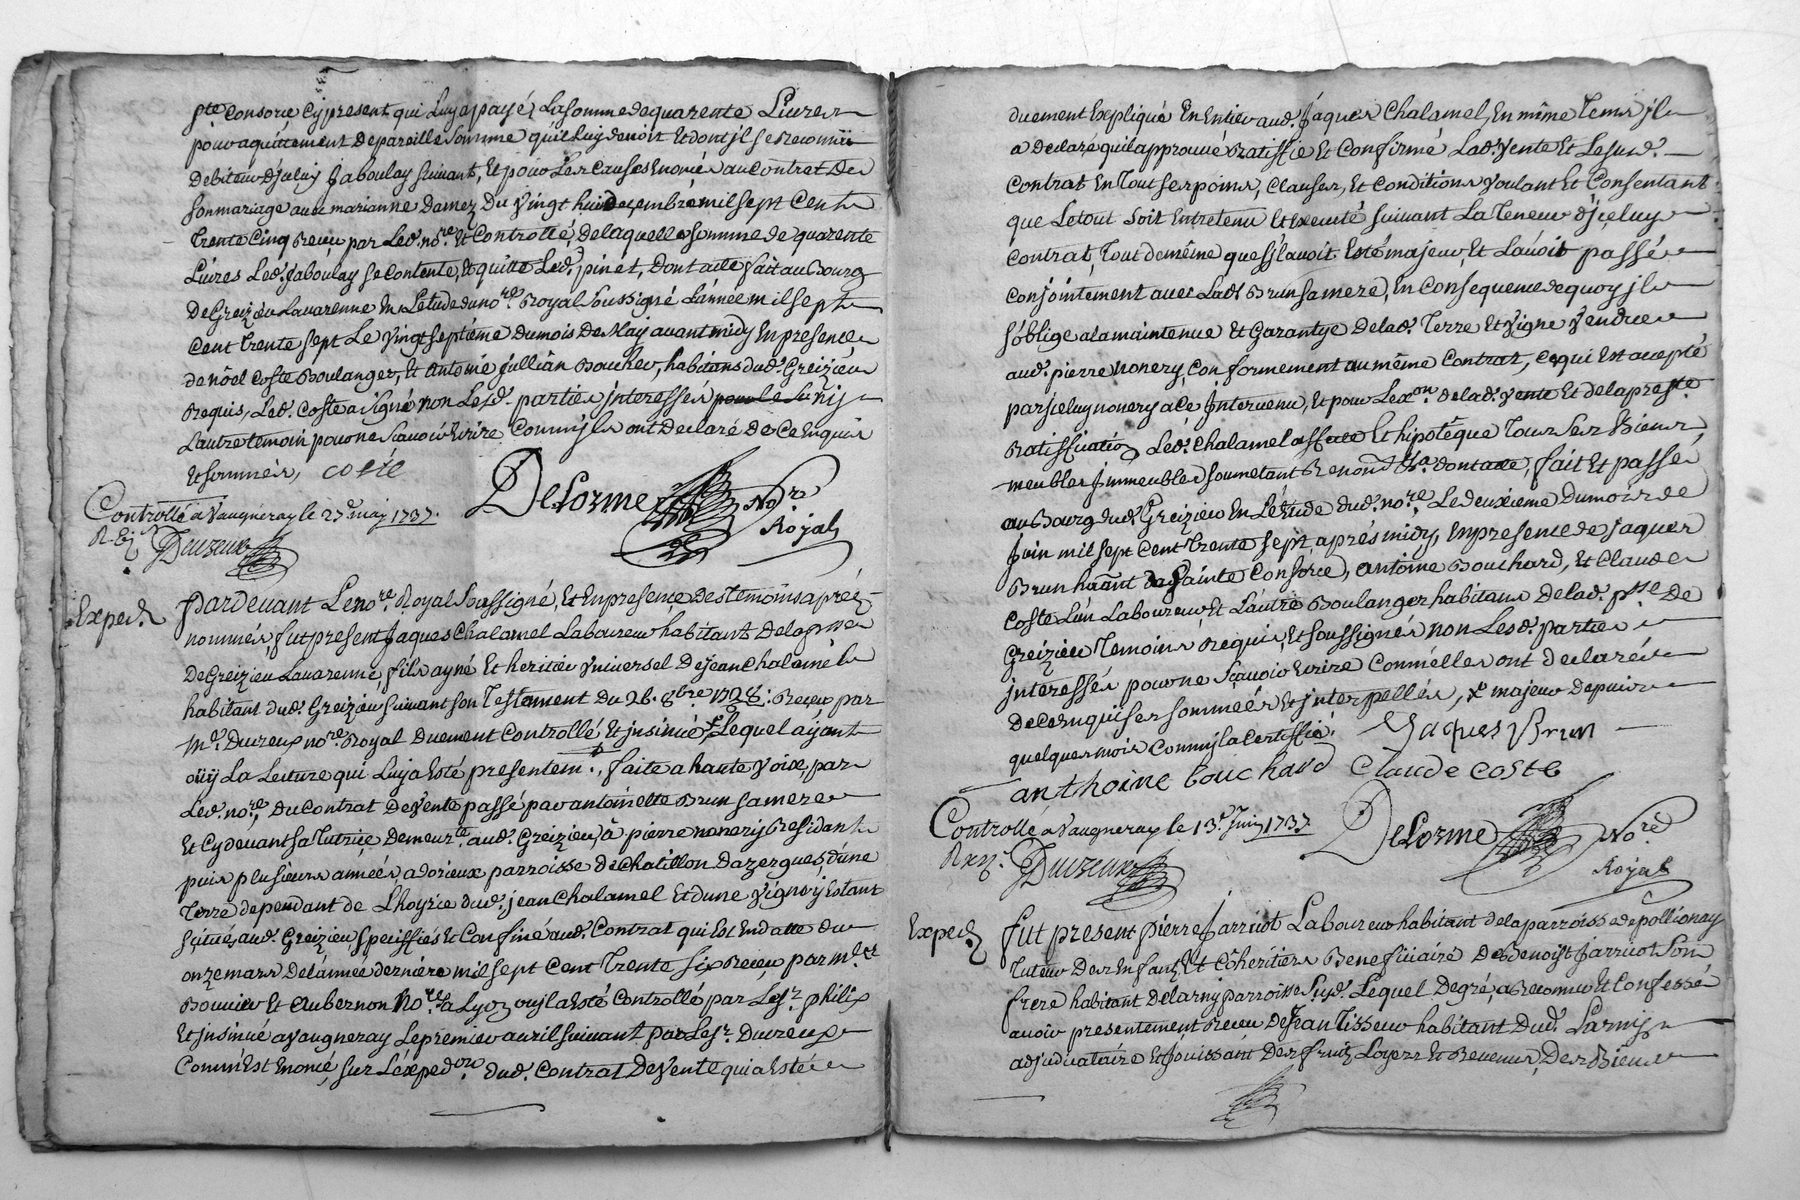 pte Consorce Cy present qui Luy a payé La somme de quarente Livres
pour aquittement de pareille somme qu'il luy devoit Et dont il se Reconnû
debiteur d'jceluy Jaboulay suivant, Et pour Les Causes Enoncés au Contrat de
son mariage avec marianne Damez du Vingt huit decembre mil sept Cent
trente Cinq Receu par Led. nore. Et Controllé, de laquelle somme de quarente
Livres Led. Jaboulay se Contente, Et quitte Led. pinét, Dont acte fait au Bourg
De Greizieu Lavarenne En L'etude du nore. Royal soussigné L'année mil sept
Cent trente sept Le Vingt septième du mois de May avant midy En presence
de nöel Coste Boulanger, Et Antoine Jullian Boucher, habitans dud. Greizieu
Requis, Led. Coste a signé non Lesd. parties jnteressés pour le su nij
L'autre temoin pour ne sçavoir Ecrire Comm'jls ont Declaré de Ce Enquis
Et sommés, coste
Controllé a Vaugneray le 27e may 1737.
DeLorme Nore
Royal
Ducreux
Exped.
Pardevant Le nore. Royal Soussigné, Et En presence des temoins aprés
nommés, fut present Jaques Chalamel Laboureur habitant de la pse
De Greizieu Lavarenne, fils ayné Et heritier Vniversel De jean Chalamel
habitant dud. Greizieu suivant son Testament du 26. 8bre. 1728: Receu par
Me. Ducreux nore. Royal Duement Controllé Et jnsinué Lequel ayant
oüy La Lecture qui Luy a Esté presentemt., faite a haute Voix, par
Led. nore. du Contrat De Vente passé par antoinette Brun sa mere
Et Cy devant sa Tutrice Demeurte. aud. Greizieu, à pierre nonery Residant
puis plusieurs années, a dorieux parroisse de Chatillon Dazergues, d'une
Terre dependant de L'hoyrie dud. jean Chalamel Et d'une Vigne, y Estant
scituée, aud. Greizieu, speciffiés Et Confiné aud. Contrat qui Est En datte du
onze mars de L'année derniére mil sept Cent Trente six Receu par mes.
Bouvier Et Aubernon Nores. a Lyon ouj la Esté Controllé par Le sr. philix
Et jnsinué a Vaugneray Le premier avril suivant par Le sr. Ducreux
Comm'Est Enoncé, sur L'expedon. dud. Contrat De Vente qui a Esté
duement Expliqué En Entier aud. Jaques Chalamel, En même Tems jl
a declaré qu'il approuve Ratiffie Et Confirme Lad. Vente Et Le susd.
Contrat En Tout ses poins, Clauses, Et Conditions Voulant Et Consentant
que Le tout soit Entretenu Et Executé suivant La Teneur d'jceluy
Contrat, Tout de même que s'jl avoit Esté majeur, Et L'avoit passé
Conjointement avec Lad. Brun sa mere, En Consequence de quoy jl
s'oblige a la maintenue Et Garantye de lad. Terre Et Vigne Vendue
aud. pierre nonery, Conformement au même Contrat, Ce qui Est accepté
par jceluy nonery a Ce Jntervenu, Et pour L'exon. de lad. Vente Et de la preste.
Ratiffication Led. Chalamel affecte Et hipotèque Tous ses Biens,
meubles Jmmeubles soumetant Renond &a. dont acte, fait Et passé
au Bourg dud. Greizieu En L'étude dud. nore. Le deuxième du mois de
Juin mil sept Cent Trente sept, aprés midy, En presence de jaques
Brun haânt de Sainte Consorce, antoine Bouchard, Et Claude
Coste L'un Laboureur, Et L'autre Boulanger habitans de lad. psse. De
Greizieu Temoins Requis, Et soussignés non Lesd. parties
jnteressés pour ne sçavoir Ecrire Comm'elles ont declarés
de Ce Enquises sommées Et jnterpellés, X majeur depuis
quelques mois Comm'jl a Certiffié.
Jaques Brun
anthoine bouchard Claude coste
Controllé a Vaugneray le 13e. Juin 1737
DeLorme Nore
Royal
Ducreux
Exped.
Fut present Pierre Jarricot Laboureur habitant de la parroisse de pollionay
Tuteur Des Enfants Et Cohéritiers Beneficiaire De Benoist Jarricot Son
frere habitant De larny parroisse susd. Lequel De gré, a Reconnu Et Confessé
avoir presentement Receu De Jean Tisseur habitant Dud. Larny
adjudicataire Et Jouissant Des fruits Loyers Et Revenus, Des Biens